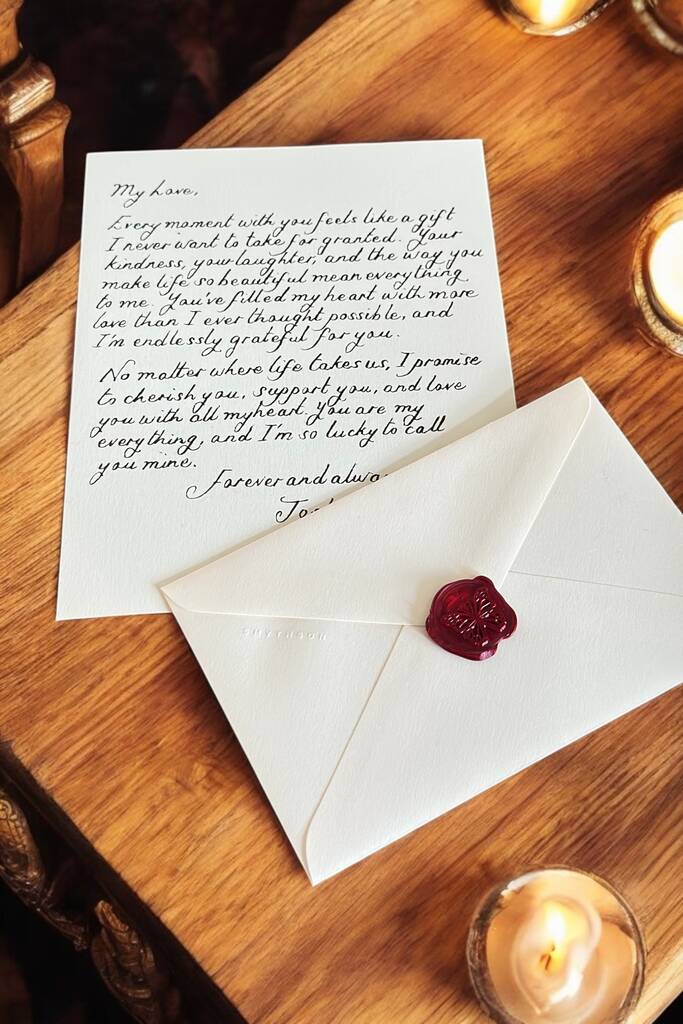 My Love,
Every moment with you feels like a gift
I never want to take for granted. Your
kindness, your laughter, and the way you
make life so beautiful mean everything
to me. You've filled my heart with more
love than I ever thought possible, and
I'm endlessly grateful for you.
No matter where life takes us, I promise
to cherish you, support you, and love
you with all my heart. You are my
everything, and I'm so lucky to call
you mine.
Forever and